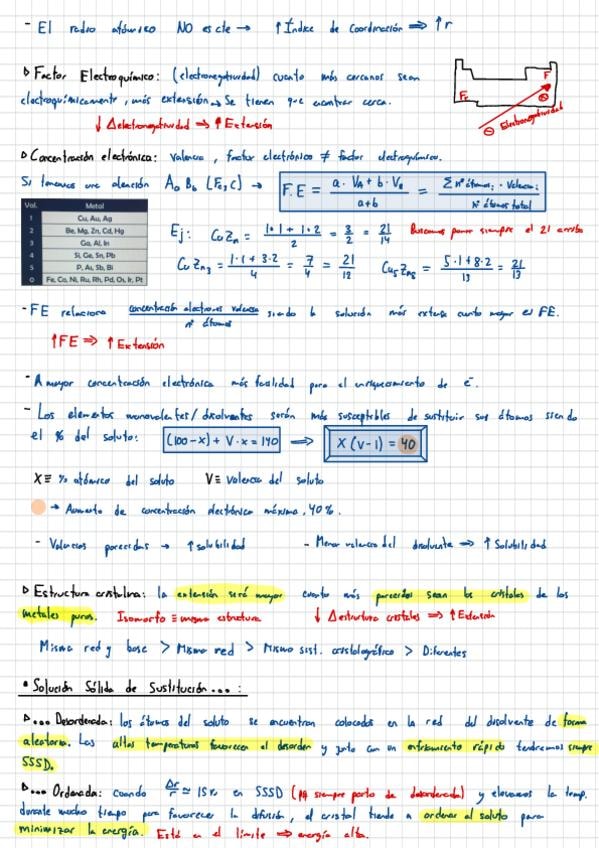 - El radio atómico NO es cte → ↑ Índice de Coordinación ⇒ ↑r
▷ Factor Electroquímico: (electronegatividad) cuanto más cercanos sean
electroquímicamente, más extensión → Se tienen que encontrar cerca.
↓ Δelectronegatividad → ↑ Extensión
F
Fr
⊕
⊖ Electronegatividad
▷ Concentración electrónica: valencia, factor electrónico ≠ factor electroquímico.
Si tenemos una aleación Aa Bb (Fe3C) → F.E = a·VA + b·VB / a+b = Σ nº átomosi · Valenciai / Nº átomos total
Val. Metal
1 Cu, Au, Ag
2 Be, Mg, Zn, Cd, Hg
3 Ga, Al, In
4 Si, Ge, Sn, Pb
5 P, As, Sb, Bi
0 Fe, Co, Ni, Ru, Rh, Pd, Os, Ir, Pt
Ej: CuZn = 1·1 + 1·2 / 2 = 3/2 = 21/14 Buscamos poner siempre el 21 arriba
CuZn3 = 1·1 + 3·2 / 4 = 7/4 = 21/12 Cu5Zn8 = 5·1 + 8·2 / 13 = 21/13
- FE relaciona concentración electrones valencia / nº átomos siendo la solución más extensa cuanto mayor el FE.
↑FE ⇒ ↑ Extensión
- A mayor concentración electrónica más facilidad para el enriquecimiento de e⁻.
- Los elementos monovalentes/disolventes serán más susceptibles de sustituir sus átomos siendo
el % del soluto: (100-x) + V·x = 140 ⇒ X(V-1) = 40
X ≡ % atómico del soluto V ≡ Valencia del soluto
→ Aumento de concentración electrónica máxima, 40%.
- Valencias parecidas → ↑ solubilidad - Menor valencia del disolvente → ↑ Solubilidad
▷ Estructura cristalina: la extensión será mayor cuanto más parecidos sean los cristales de los
metales puros. Isomorfo ≡ misma estructura ↓ Δ estructura cristales ⇒ ↑ Extensión
Misma red y base > Misma red > Mismo sist. cristalográfico > Diferentes
• Solución Sólida de Sustitución...:
▷ ... Desordenada: los átomos del soluto se encuentran colocados en la red del disolvente de forma
aleatoria. Las altas temperaturas favorecen el desorden y junto con un enfriamiento rápido tendremos siempre
SSSD.
▷ ... Ordenada: cuando Δr/r ≃ 15% en SSSD (pq siempre parto de desordenada) y elevamos la temp.
durante mucho tiempo para favorecer la difusión, el cristal tiende a ordenar al soluto para
minimizar la energía. Está en el límite ⇒ energía alta.